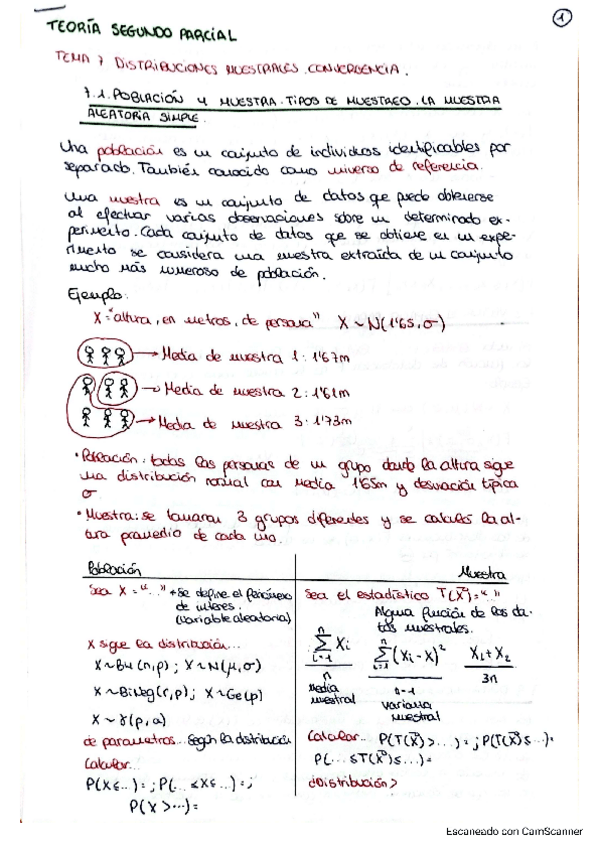 1
TEORÍA SEGUNDO PARCIAL
TEMA 7 DISTRIBUCIONES MUESTRALES. CONVERGENCIA.
7.1. POBLACIÓN Y MUESTRA. TIPOS DE MUESTREO. LA MUESTRA
ALEATORIA SIMPLE.
Una población es un conjunto de individuos identificables por
separado. También conocido como universo de referencia.
Una muestra es un conjunto de datos que puede obtenerse
al efectuar varias observaciones sobre un determinado ex-
perimento. Cada conjunto de datos que se obtiene en un expe-
rimento se considera una muestra extraída de un conjunto
mucho más numeroso de población.
Ejemplo:
X = "altura, en metros, de persona" X ~ N(1'65, σ)
→ Media de muestra 1: 1'67m
→ Media de muestra 2: 1'61m
→ Media de muestra 3: 1'73m
• Población: todas las personas de un grupo donde la altura sigue
una distribución normal con media 1'65m y desviación típica
σ.
• Muestra: se tomaron 3 grupos diferentes y se calculó la al-
tura promedio de cada uno.
Población
Sea X = "..." → Se define el fenómeno
de interés.
(variable aleatoria)
X sigue la distribución...
X ~ BN (n,p) ; X ~ N(μ, σ)
X ~ BiNeg(r,p) ; X ~ Ge(p)
X ~ γ(p,a)
de parámetros... Según la distribución
Calcular...
P(X ≤ ...) = ; P(... ≤ X ≤ ...) = ;
P(X > ...) =
Muestra
Sea el estadístico T(X) = " "
Alguna función de los da-
tos muestrales.
n n
Σ Xi Σ (Xi - X)² X1 + X2
i=1 i=1
n n-1 3n
Media varianza
muestral muestral
Calcular... P(T(X) > ...) = ; P(T(X) ≤ ...) =
P(... ≤ T(X) ≤ ...) =
¿Distribución?
Escaneado con CamScanner